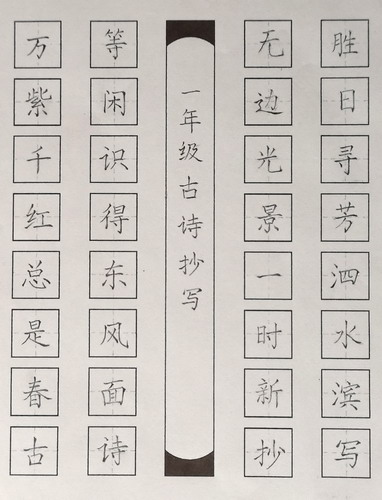 胜日寻芳泗水滨写
无边光景一时新抄
一年级古诗抄写
等闲识得东风面诗
万紫千红总是春古